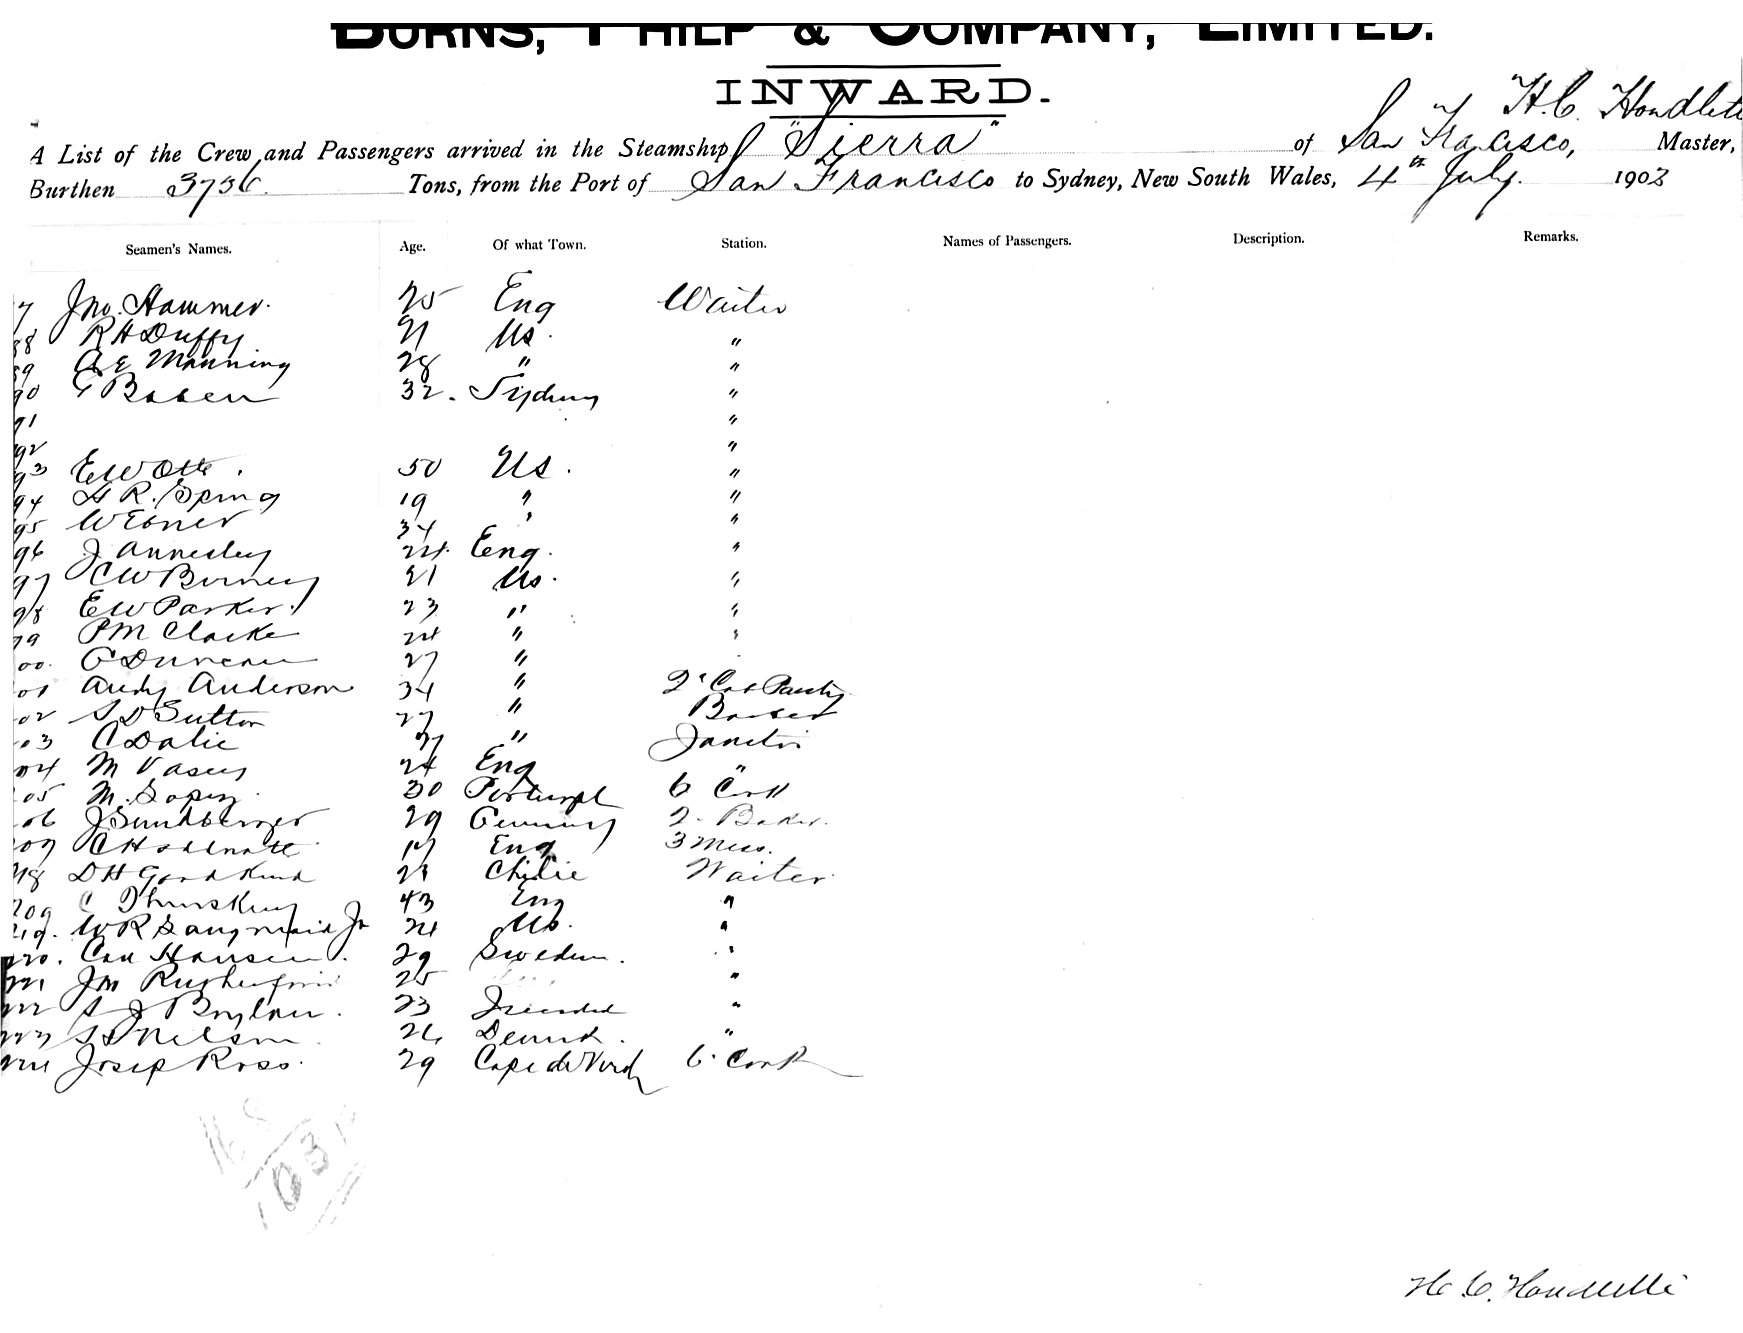 BURNS, PHILP & COMPANY, LIMITED.
INWARD.
A List of the Crew and Passengers arrived in the Steamship "Sierra" of San Francisco, H.C. Houdlette Master,
Burthen 3736 Tons, from the Port of San Francisco to Sydney, New South Wales, 4th July. 1903
Seamen's Names. Age. Of what Town. Station. Names of Passengers. Description. Remarks.
7 Jno. Hammer. 25 Eng Waiter
88 R H Duffy 21 Us. "
89 A E Manning 28 " "
90 32. Sydney "
91 "
92 "
93 E W Otte. 50 Us. "
94 H R. Spring 19 " "
95 W Ebner 34 " "
96 J Annesley 24. Eng. "
97 C W Birney 21 Us. "
98 E W Parker. 23 " "
99 P M Clarke 24 " "
00. G Duncan 27 "
01 Andy Anderson 34 " 2' Cab Pantry
02 S D Sutton 27 " Barber
03 C Dalie " Janitor
04 M Vasey 24 Eng "
05 M. Lopez. 30 Portugal 6 Cook
06 J Sundberger 29 Germany 2. Baker.
207 17 Eng 3 Mess.
D H Goodkind 21 Chilie Waiter
209 C 43 Eng "
219. W R Sangmaid Jr 24 Us. "
220. Carl Hansen. 29 Sweden. "
221 Jm Rutherford 25 "
222 S J Boylan. 23 "
223 S Nelson. 26 Denmk. "
224 Josep Ross. 29 Cape de Verd 6. Cook
168
1031
H. C. Houdlette